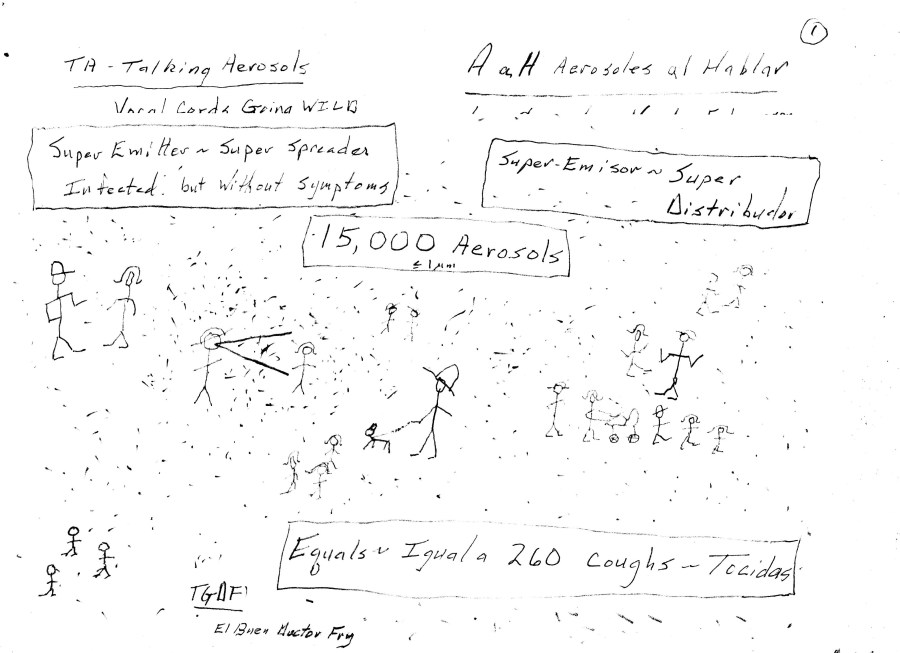 1
TA - Talking Aerosols
A aH Aerosoles al Hablar
Vocal Cords Going WILD
Super Emitter ~ Super Spreader
Infected but without symptoms
Super-Emisor ~ Super
Distribudor
15,000 Aerosols
≤1μm
Equals ~ Iguala 260 Coughs ~ Tocidas
TGDF
El Buen Doctor Fry